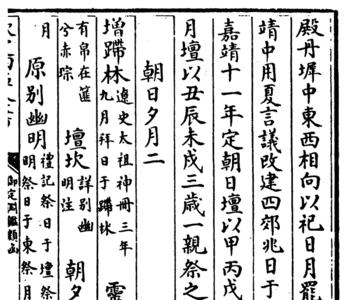 殿丹墀中東西相向以祀日月罷
靖中用夏言議改建四郊兆日于
嘉靖十一年定朝日壇以甲丙戊
月壇以丑辰未戌三歲一親祭之
朝日夕月二
增蹛林
遼史太祖神冊三年
九月拜日于蹛林
靈
有帛在篚
兮赤宗
壇坎
詳別幽
明注
朝夕
月
原別幽明
禮記祭日于壇祭
明祭日于東祭月
御定淵鑑類函